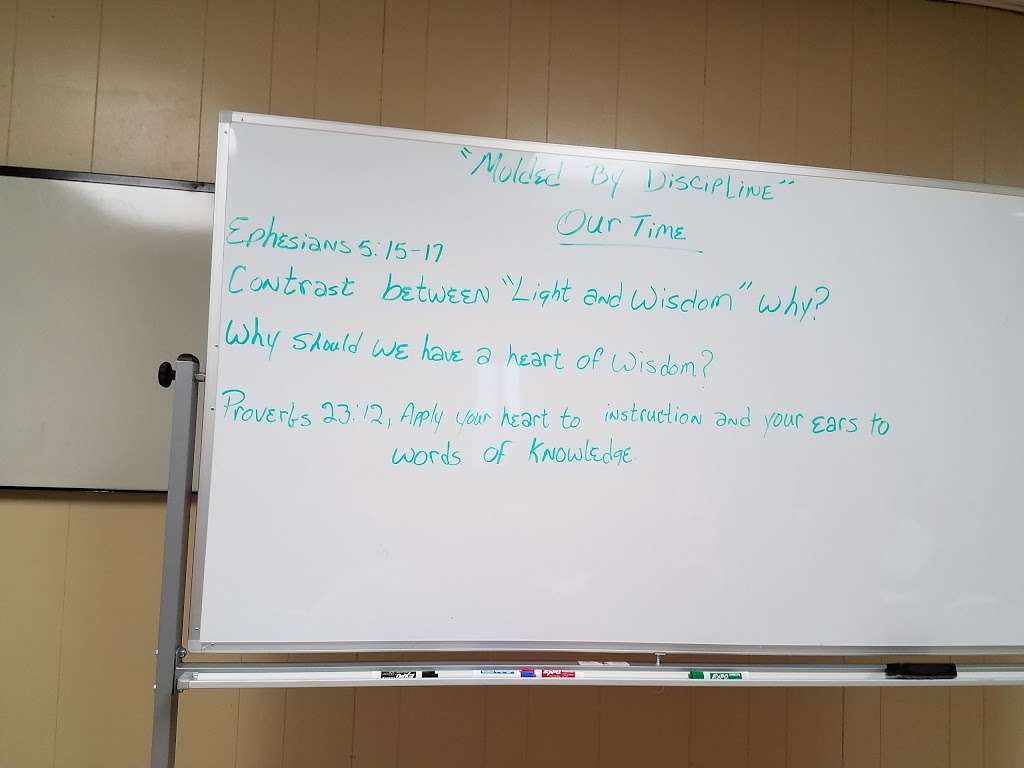 "Molded By Discipline"
Our Time
Ephesians 5:15-17
Contrast between "Light and Wisdom" why?
Why should we have a heart of Wisdom?
Proverbs 23:12, Apply your heart to instruction and your ears to
words of Knowledge.
EXPO